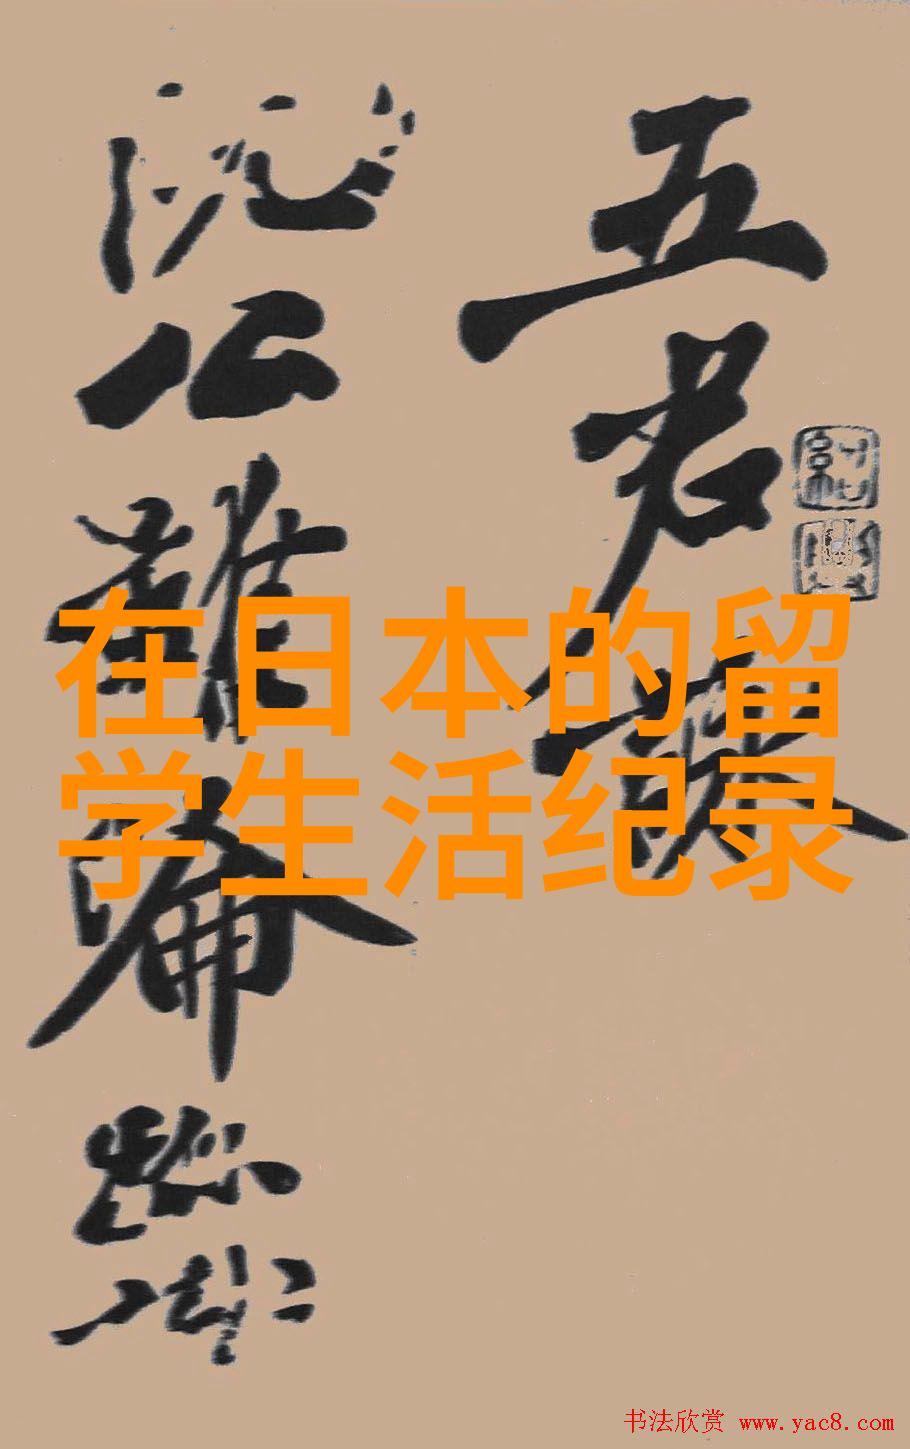 五君詠
阮公雖淪跡
在日本的留
学生活纪录
书法欣赏 www.yac8.com